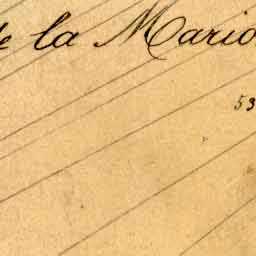 de la Mario
53